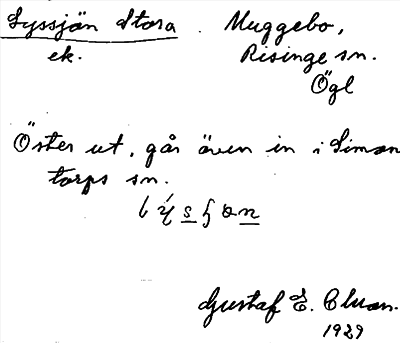 Lyssjön Stora. Muggebo,
ek. Risinge sn.
Ögl
Öster ut, går även in i Simon
torps sn.
Gustaf E.
1929